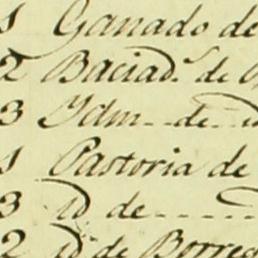 1 Ganado de
2 Baciad.º de
3 Ydm.. de..
1 Pastoria de
3 id de......
2 id. de Borreg